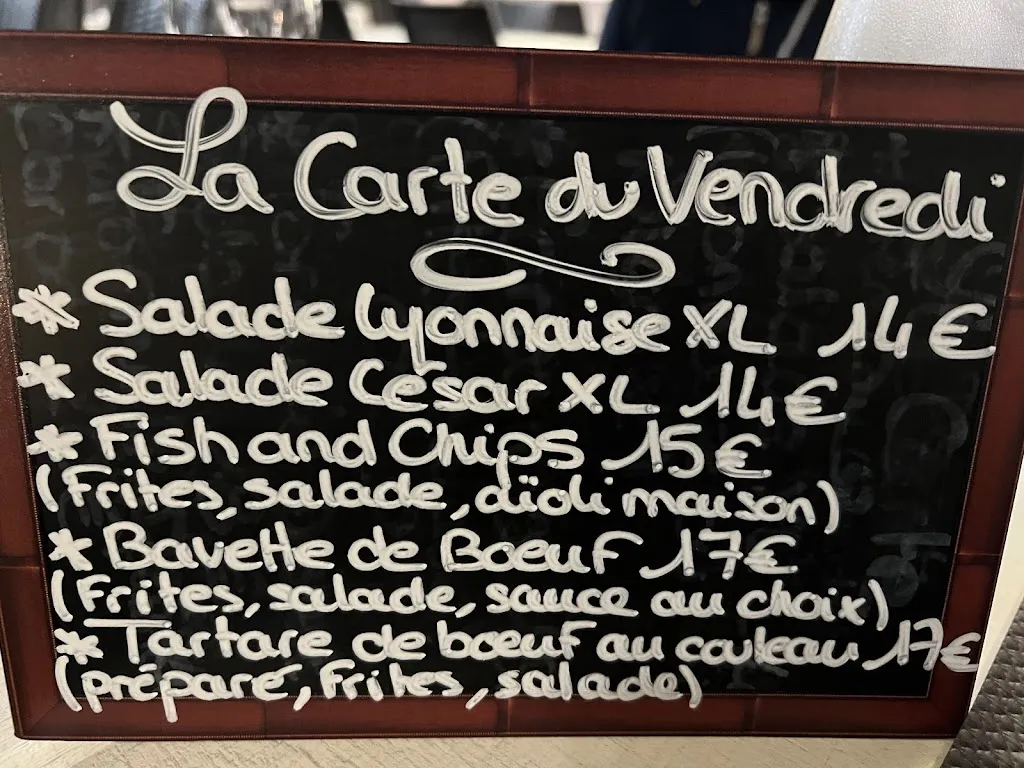 La Carte du Vendredi
* Salade Lyonnaise XL 14€
* Salade César XL 14€
* Fish and Chips 15€
(Frites, salade, aïoli maison)
* Bavette de Boeuf 17€
(Frites, salade, sauce au choix)
* Tartare de bœuf au couteau 17€
(préparé, frites, salade)